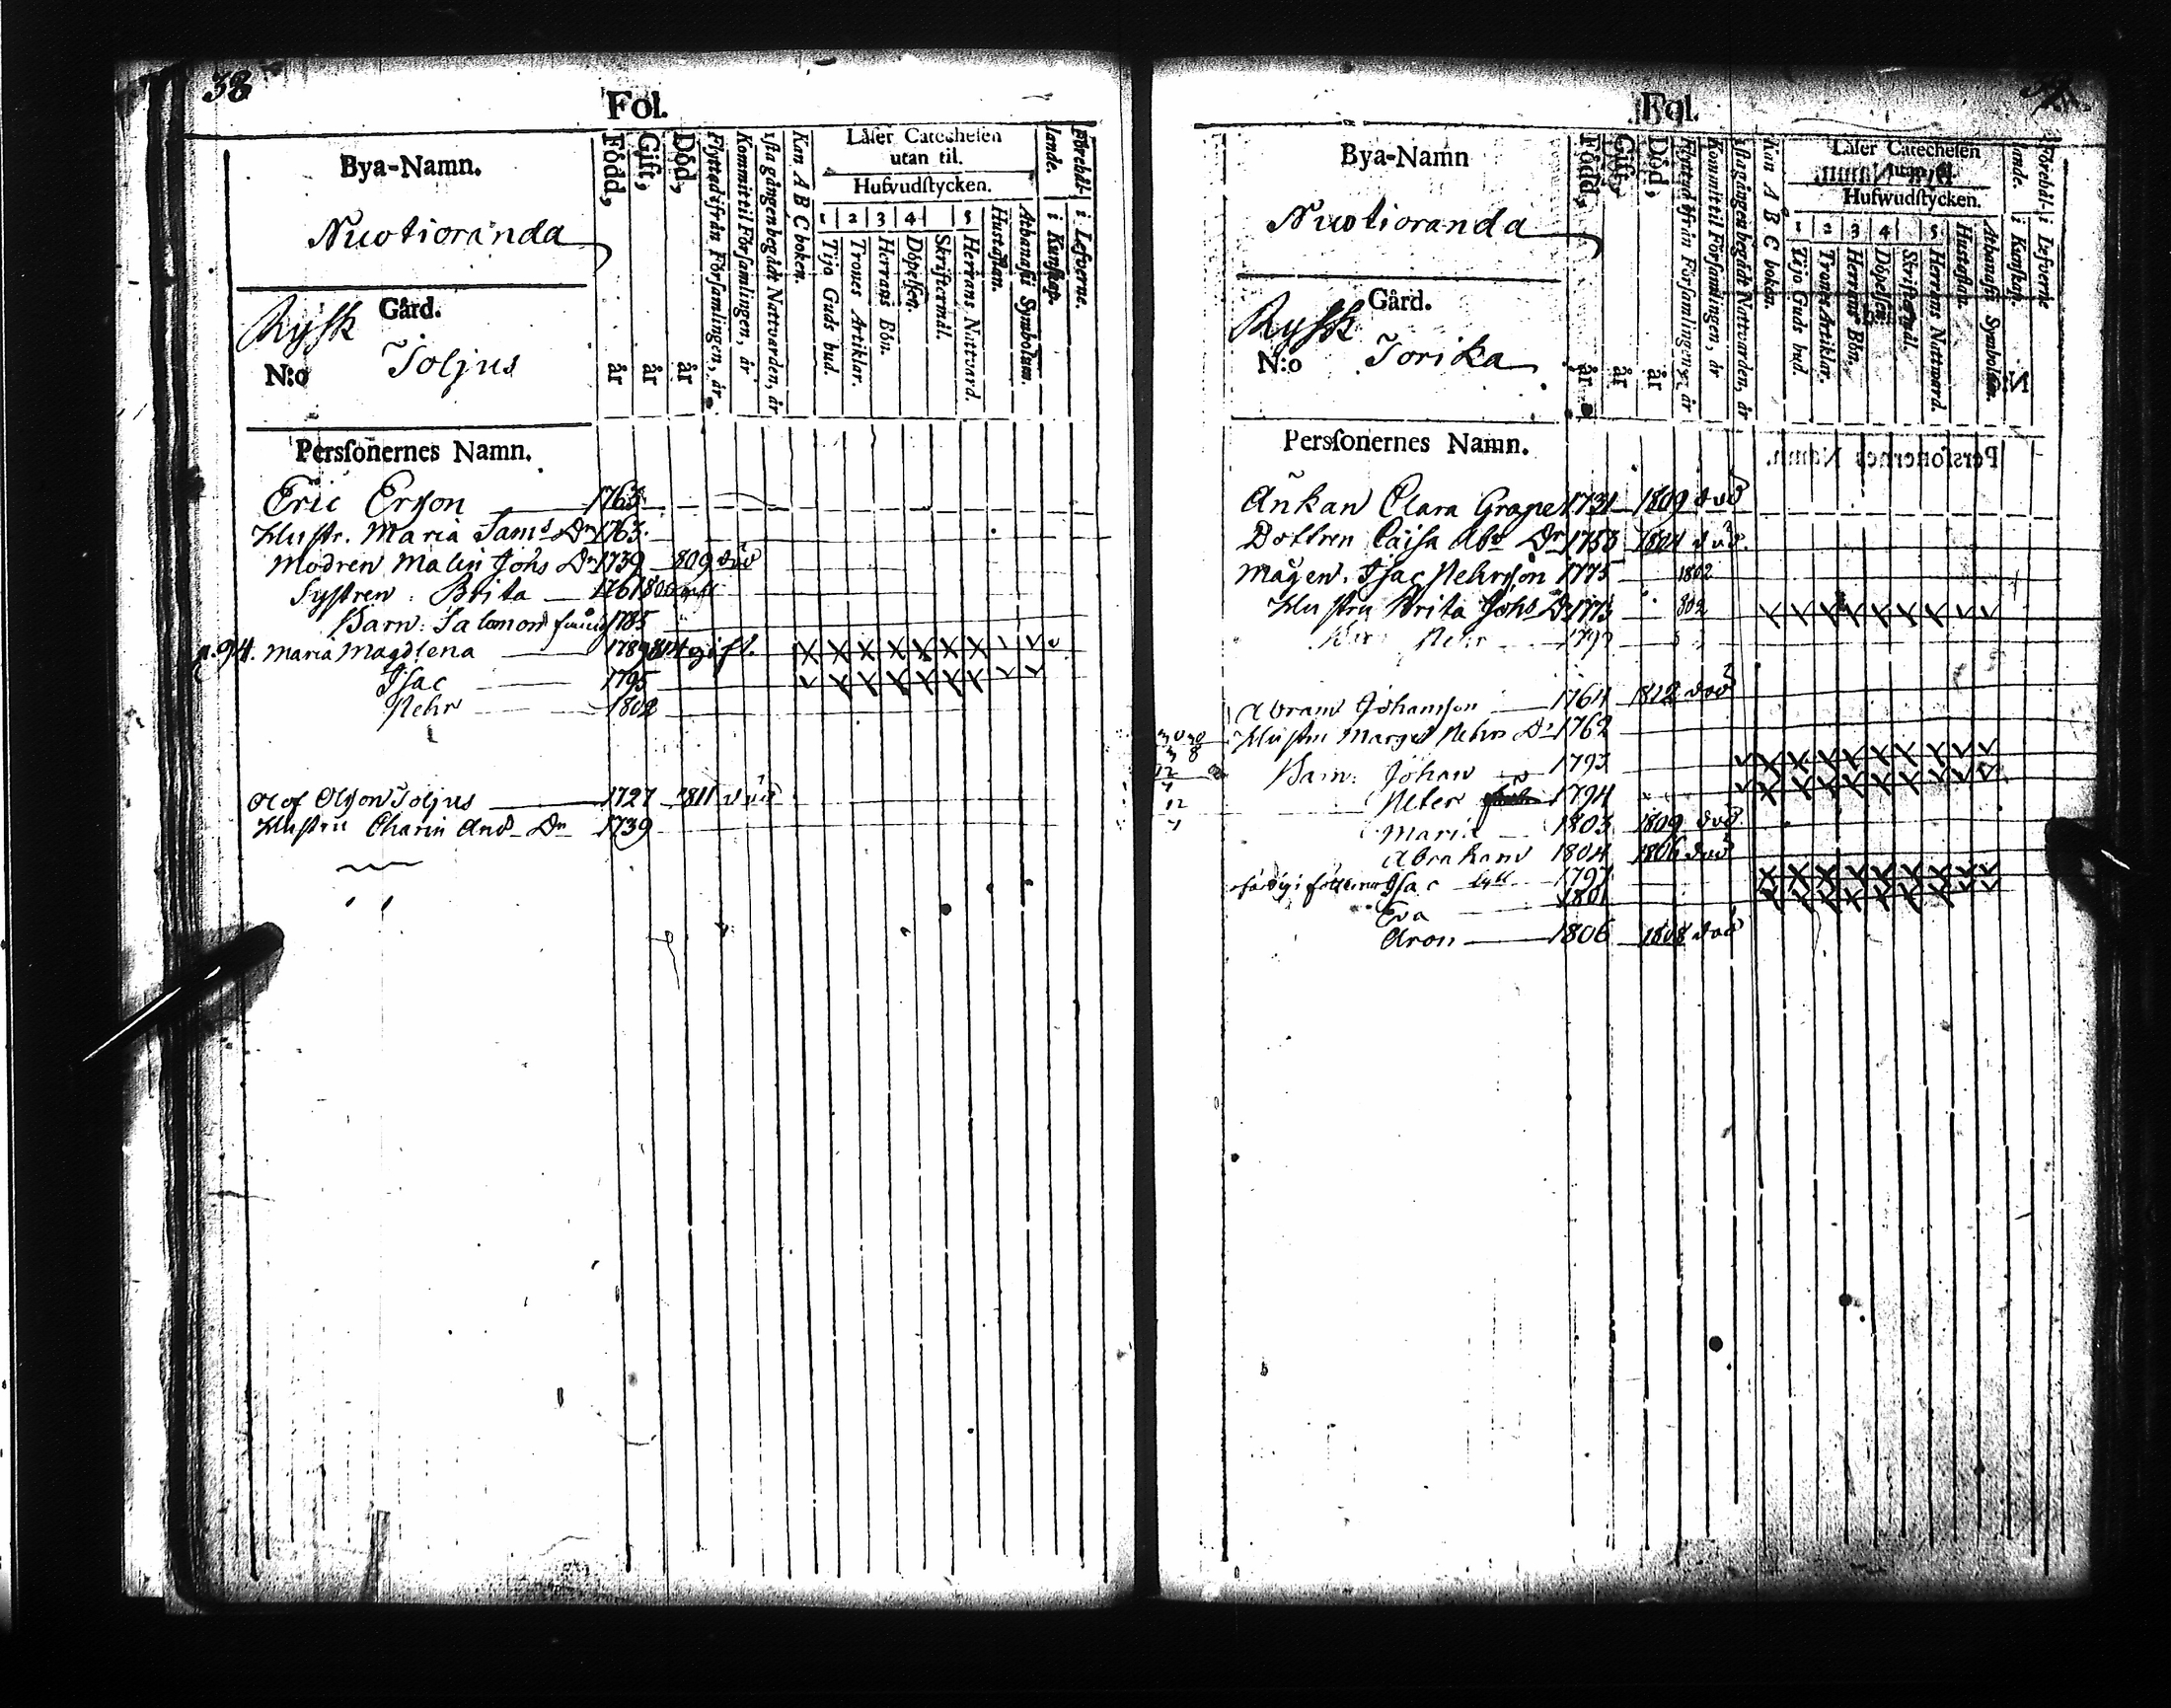 38
Fol.
Bya-Namn.
Nuotioranda
Gård.
Rysk
N:o Toljus
Persſonernes Namn.
Född, år
Gift, år
Död, år
Flyttad ifrån Förſamlingen, år
Kommit til Förſamlingen, år
1ſta gången begådt Nattvarden, år
Kan A B C boken.
Läſer Catecheſen
utan til.
Hufvudſtycken.
1 2 3 4 5
Tijo Guds bud.
Trones Artiklar.
Herrans Bön.
Döpelſen.
Skriftermål.
Herrans Nattvard.
Hustaflan.
Athanaſii Symbolum.
Förehållande.
i Kunſkap.
i Lefverne.
Eric Erſson 1763
Huſtr. Maria Sams Dr 1763
Modren Malin Johs Dr 1739 809 död
Syſtren Brita 1761
Barn: Salomon 1785
p. 94. Maria Magdlena 1789 gift.
Iſac 1795
Pehr 1802
Olof Olſson Toljus 1727 1811 död
Huſtru Charin And Dr 1739
Fol.
Bya-Namn
Nuotioranda
Gård.
Rysk
N:o Jorika
Persſonernes Namn.
Född, år
Gift, år
Död, år
Flyttad ifrån Förſamlingen, år
Kommit til Förſamlingen, år
1ſta gången begådt Nattvarden, år
Kan A B C boken.
Läſer Catecheſen
utan til.
Hufwudſtycken.
1 2 3 4 5
Tijo Guds bud.
Trones Artiklar.
Herrans Bön.
Döpelſen.
Skriftermål.
Herrans Nattward.
Hustaflan.
Athanaſii Symbolum.
Förehållande.
i Kunſkap.
i Lefverne
Änkan Clara Grape 1731 1809 död
Dottren Caiſa Abr Dr 1753 1801 död.
Mågen. Iſac Pehrſson 1775 1802
Huſtru Brita Johs Dr 1773 802
Pehr 1797
Abram Johanſson 1764 1812 död
Huſtru Marget Pehrs Dr 1762
Barn: Johan 1793
Peter 1794
Maria 1803 1809 död.
Abraham 1804 1806 död
Iſac 1797
Eva 1801
Aron 1806 1808 död